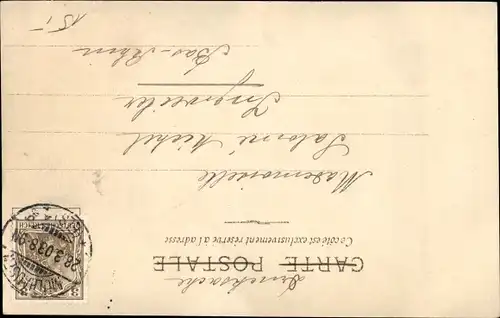 Drucksache
CARTE POSTALE
Ce côté est exclusivement réservé à l'adresse
Mademoiselle
Salomé Michel
Ingweiler
Bas-Rhin
15.-
3